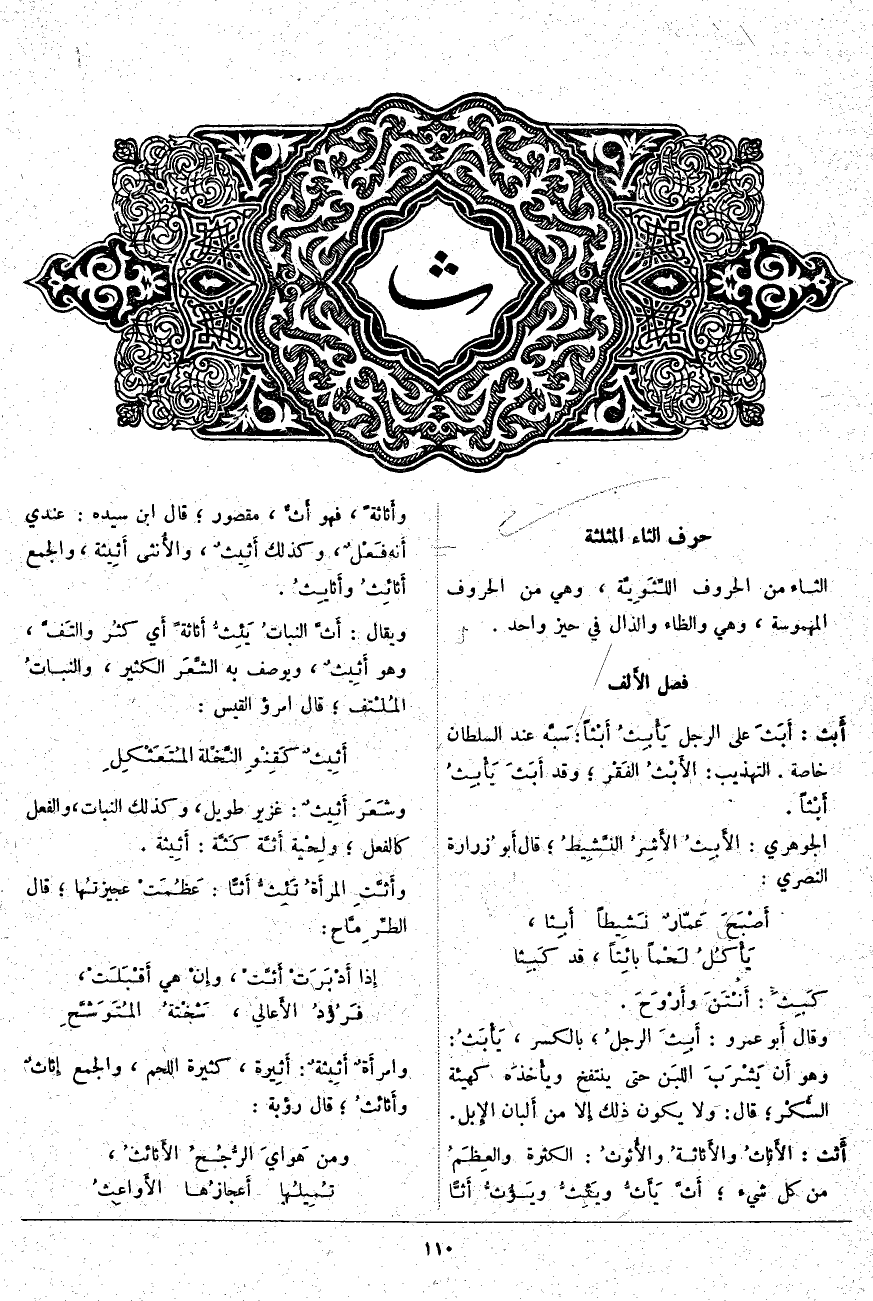 ث
حرف الثاء المثلثة
الثاء من الحروف اللِّثَوِيَّة ، وهي من الحروف
المهموسة ، وهي والظاء والذال في حيز واحد .
فصل الألف
أَبث : أَبَثَ على الرجل يَأْبِثُ أَبْثاً : سَبَّه عند السلطان
خاصة . التهذيب : الأَبْثُ الفَقْر ؛ وقد أَبَثَ يَأْبِثُ
أَبْثاً .
الجوهري : الأَبِثُ الأَشِرُ النَّشِيطُ ؛ قال أبو زرارة
النصري :
أَصْبَحَ عَمَّارٌ نَشِيطاً أَبِثا ،
يَأْكُلُ لَحْماً بائِتاً ، قد كَبِثا
كَبِثَ : أَنْتَنَ وأَرْوَحَ .
وقال أبو عمرو : أَبِثَ الرجلُ ، بالكسر ، يَأْبَثُ :
وهو أن يَشْرَبَ اللبَن حتى ينتفخ ويأخذَه كهيئة
السُّكْر ؛ قال : ولا يكون ذلك إلا من ألبان الإبل .
أَثث : الأَثاثُ والأَثاثةُ والأُثوثُ : الكثرة والعِظَمُ
من كل شيء ؛ أَثَّ يَأَثُّ ويَئِثُّ ويَؤُثُّ أَثّاً
وأَثاثةً ، فهو أَثٌّ ، مقصور ؛ قال ابن سيده : عندي
أنه فَعْلٌ ، وكذلك أَثِيثٌ ، والأُنثى أَثِيثة ، والجمع
أَثائِثُ وأَثايِثُ .
ويقال : أَثَّ النباتُ يَئِثُّ أَثاثةً أي كثُر والتَفَّ ،
وهو أَثِيثٌ ، ويوصف به الشَّعَر الكثير ، والنباتُ
المُلْتَف ؛ قال امرؤ القيس :
أَثِيثٌ كَقِنْوِ النَّخْلة المُتَعَثْكِلِ
وشَعَر أَثِيثٌ : غزير طويل ، وكذلك النبات ، والفعل
كالفعل ؛ ولِحْية أَثَّة كَثَّة : أَثِيثة .
وأَثَّتِ المرأَةُ تَئِثُّ أَثّاً : عَظُمَتْ عجيزتُها ؛ قال
الطِّرِمَّاح :
إذا أَدْبَرَتْ أَثَّتْ ، وإنْ هي أَقْبَلَتْ ،
فَرُؤْدُ الأَعالي ، شَخْتةُ المُتَوَشَّحِ
وامرأَةٌ أَثِيثةٌ : أَثِيرة ، كثيرة اللحم ، والجمع إثاثٌ
وأَثائثُ ؛ قال رؤبة :
ومن هَوايَ الرُّجُحُ الأَثائثُ ،
تُمِيلُها أَعجازُها الأَواعِثُ
١١٠